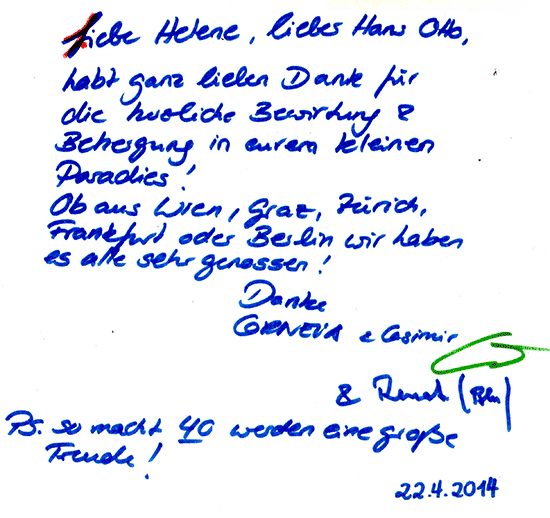 Liebe Helene, lieber Hans Otto,
habt ganz lieben Dank für
die herzliche Bewirtung &
Beherbergung in eurem kleinen
Paradies!
Ob aus Wien, Graz, Zürich,
Frankfurt oder Berlin wir haben
es alle sehr genossen!
Danke
& Casimir
&
Ps. so macht 40 werden eine große
Freude!
22.4.2014